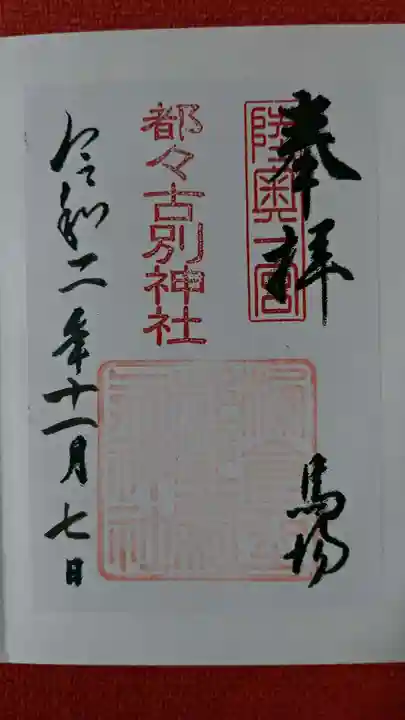 奉拝
陸奥一宮
馬場
都々古別神社
令和二年十一月七日